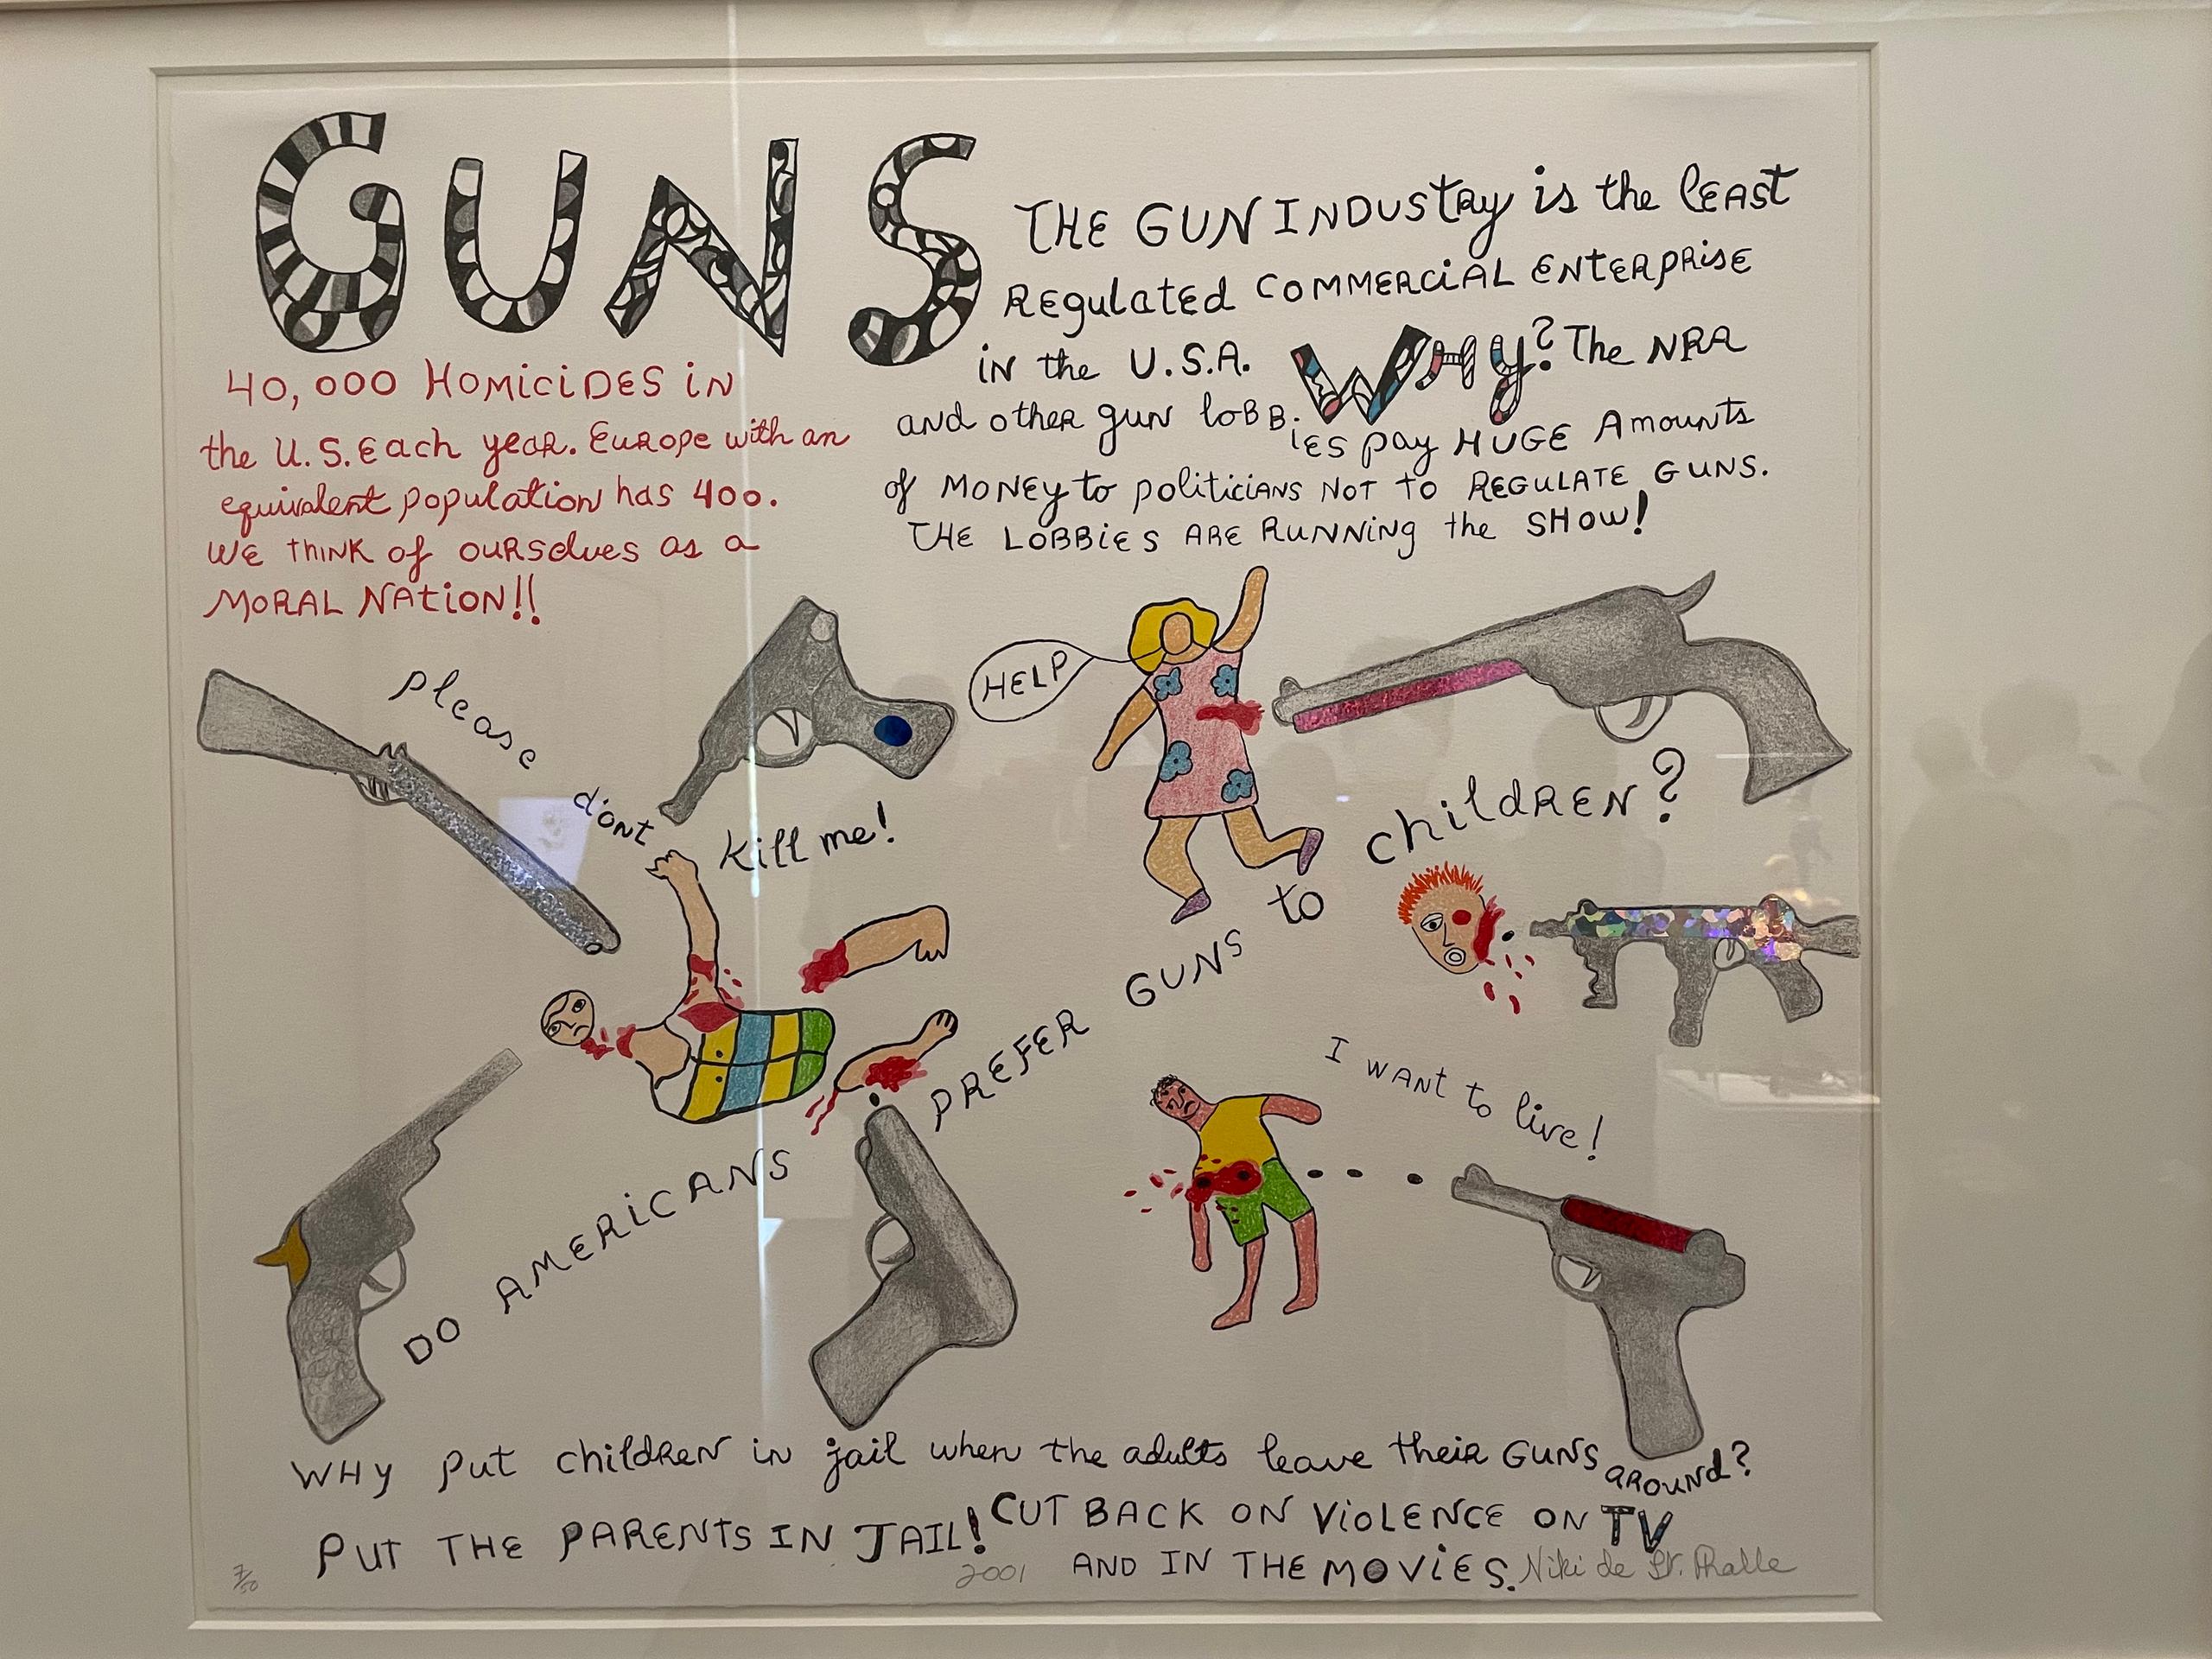 GUNS
THE GUN INDUStRy is the lEAST
REgulatEd COMMERCiAL ENtERPRisE
iN the U.S.A. WHY? The NRA
aND otheR gun loBB.
iES pay HUGE Amounts
of MONEy to politiciANS NOT TO REGULATE GUNS.
THE LOBBiES ARE RUNNINg the SHOW!
40,000 HomiciDES iN
the U.S. Each yeaR. EuRopE with an
equivalent population has 400.
WE thiNK of ouRselves as a
MORAL NAtiON!!
please
d'ont
kill me!
HELP
DO AMERiCANS PREFER GUNS to childREN?
I WANt to live!
WHY put childREN in jail when the adults leave theiR GUNS
aROUNd?
PUT THE PARENTS IN JAIL! CUT BACK ON ViOLENCE ON TV
AND IN THE MOViES.
7/50
2001
Niki de St. Phalle